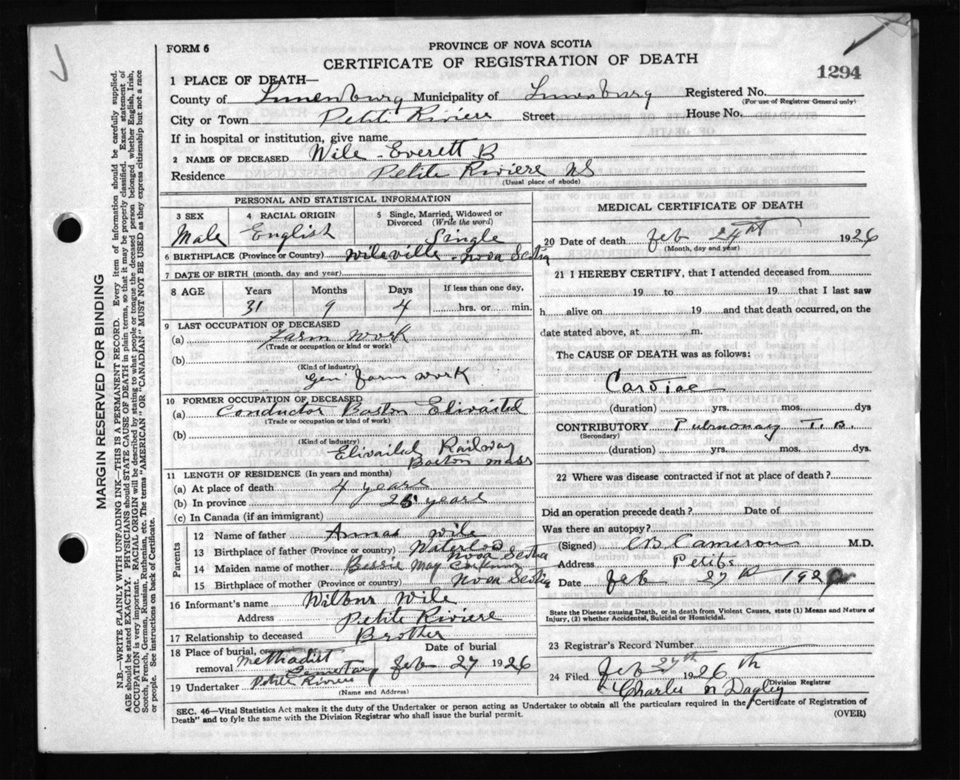 FORM 6
PROVINCE OF NOVA SCOTIA
CERTIFICATE OF REGISTRATION OF DEATH
1294
1 PLACE OF DEATH—
County of Lunenburg Municipality of Lunenburg Registered No.
(For use of Registrar General only)
City or Town Petite Riviere Street House No.
If in hospital or institution, give name
2 NAME OF DECEASED Wile Everett B
Residence Petite Riviere NS
(Usual place of abode)
PERSONAL AND STATISTICAL INFORMATION
3 SEX 4 RACIAL ORIGIN 5 Single, Married, Widowed or Divorced (Write the word)
Male English Single
6 BIRTHPLACE (Province or Country) Wileville Nova Scotia
7 DATE OF BIRTH (month, day and year)
8 AGE Years Months Days If less than one day,
31 9 4 hrs. or min.
9 LAST OCCUPATION OF DECEASED
(a) Farm Work
(Trade or occupation or kind or work)
(b)
(Kind of industry)
Gen farm work
10 FORMER OCCUPATION OF DECEASED
(a) Conductor Boston Elivaited
(Trade or occupation or kind of work)
(b)
(Kind of industry)
Elivaited Railway
Boston Mass
11 LENGTH OF RESIDENCE (In years and months)
(a) At place of death 4 years
(b) In province 25 years
(c) In Canada (if an immigrant)
Parents
12 Name of father Wile
13 Birthplace of father (Province or country) Waterloo Nova Scotia
14 Maiden name of mother Bessie May
15 Birthplace of mother (Province or country) Nova Scotia
16 Informant's name Wilbur Wile
Address Petite Riviere
17 Relationship to deceased Brother
18 Place of burial, or removal Methodist Cemetary Petite Riviere
Date of burial
Feb 27 1926
19 Undertaker
(Name and Address)
MEDICAL CERTIFICATE OF DEATH
20 Date of death Feb 24th 1926
(Month, day and year)
21 I HEREBY CERTIFY, that I attended deceased from
19 to 19 that I last saw
h alive on 19 and that death occurred, on the
date stated above, at m.
The CAUSE OF DEATH was as follows:
Cardiac
(duration) yrs. mos. dys
CONTRIBUTORY Pulmonary T.B.
(Secondary)
(duration) yrs. mos. dys.
22 Where was disease contracted if not at place of death?
Did an operation precede death? Date of
Was there an autopsy?
(Signed) Cameron M.D.
Address Petite
Date Feb 27th 192
State the Disease causing Death, or in death from Violent Causes, state (1) Means and Nature of
Injury, (2) whether Accidental, Suicidal or Homicidal.
23 Registrar's Record Number
24 Filed Feb 27th 1926
Charles N Dagley
Division Registrar
SEC. 46—Vital Statistics Act makes it the duty of the Undertaker or person acting as Undertaker to obtain all the particulars required in the "Certificate of Registration of
Death" and to fyle the same with the Division Registrar who shall issue the burial permit.
(OVER)
MARGIN RESERVED FOR BINDING
N.B.—WRITE PLAINLY WITH UNFADING INK—THIS IS A PERMANENT RECORD. Every item of information should be carefully supplied.
AGE should be stated EXACTLY. PHYSICIANS should STATE CAUSE OF DEATH in plain terms, so that it may be properly classified. Exact statement of
OCCUPATION is very important. RACIAL ORIGIN will be described by stating to what people or tongue the deceased person belonged whether English, Irish,
Scotch, French, German, Russian, Ruthenian, etc. The terms "AMERICAN" OR "CANADIAN" MUST NOT BE USED as they express citizenship but not a race
or people. See instructions on back of Certificate.